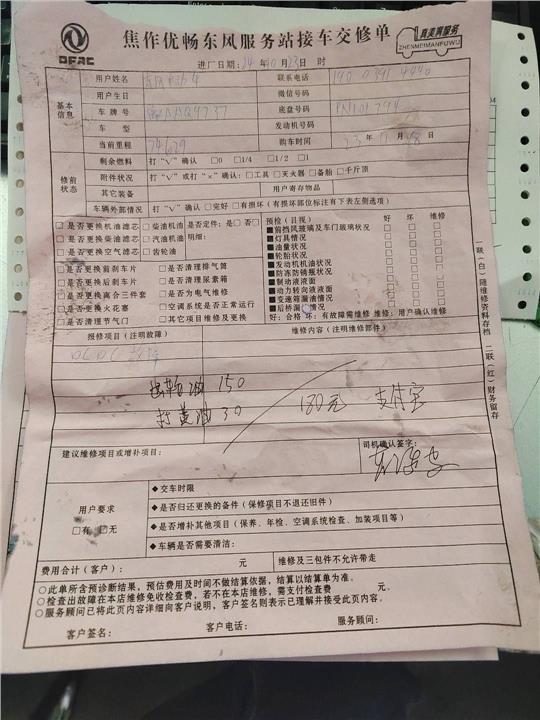 DFAC
焦作优畅东风服务站接车交修单
真美满服务
ZHENMEIMANFUWU
进厂日期:24年10月23日 时
基本信息
用户姓名 联系电话
用户生日 微信号码
车牌号 底盘号码
车型 发动机号码
当前里程 74629 购车时间
修前状态
剩余燃料 打“√”确认 □0 □1/4 □1/2 □1
附件状况 打“√”或打“×”确认:□工具 □灭火器 □备胎 □千斤顶
其它装备 用户寄存物品
车辆外部情况 打“√”确认 □完好 □有损坏(有损坏部位标注有下表左侧选项)
□是否更换机油滤芯 □柴油机油 是否定件:是□否□
□是否更换柴油滤芯 □汽油机油 明细:
□是否更换空气滤芯 □齿轮油
□是否更换前刹车片 □是否清理排气筒
□是否更换后刹车片 □是否清理尿素箱
□是否更换离合三件套 □是否为电气维修
□是否更换火花塞 □空调系统是否正常运行
□是否清理节气门 □其它项目维修及更换
预检(目视) 好 坏 维修
■前挡风玻璃及车门玻璃状况 □ □ □
■灯具情况 □ □ □
■油量状况 □ □ □
■轮胎状况 □ □ □
■发动机机油状况 □ □ □
■防冻防锈瓶状况 □ □ □
■制动液液面 □ □ □
■动力转向液液面 □ □ □
■变速箱漏油情况 □ □ □
■后桥漏油情况 □ □ □
好:合格 坏:有故障需维修 维修:用户确认维修
报修项目(注明故障) 维修内容(注明维修部件)
150
打黄油 30 180元 支付宝
建议维修项目或增补项目: 司机确认签字:
用户要求
□有 □无
◆交车时限
◆是否归还更换的备件(保修项目不退还旧件)
◆是否增补其他项目(保养、年检、空调系统检查、加装项目等)
◆车辆是否需要清洁:
费用合计(客户): 元 维修及三包件不允许带走
○此单所含预诊断结果,预估费用及时间不做结算依据,结算以结算单为准。
○检查出故障在本店维修免收检查费,若不在本店维修,需支付检查费 元。
○服务顾问已将此页内容详细向客户说明,客户签名则表示已理解并接受此页内容。
客户签名: 客户电话: 服务顾问:
一联(白)随维修资料存档 二联(红)财务留存